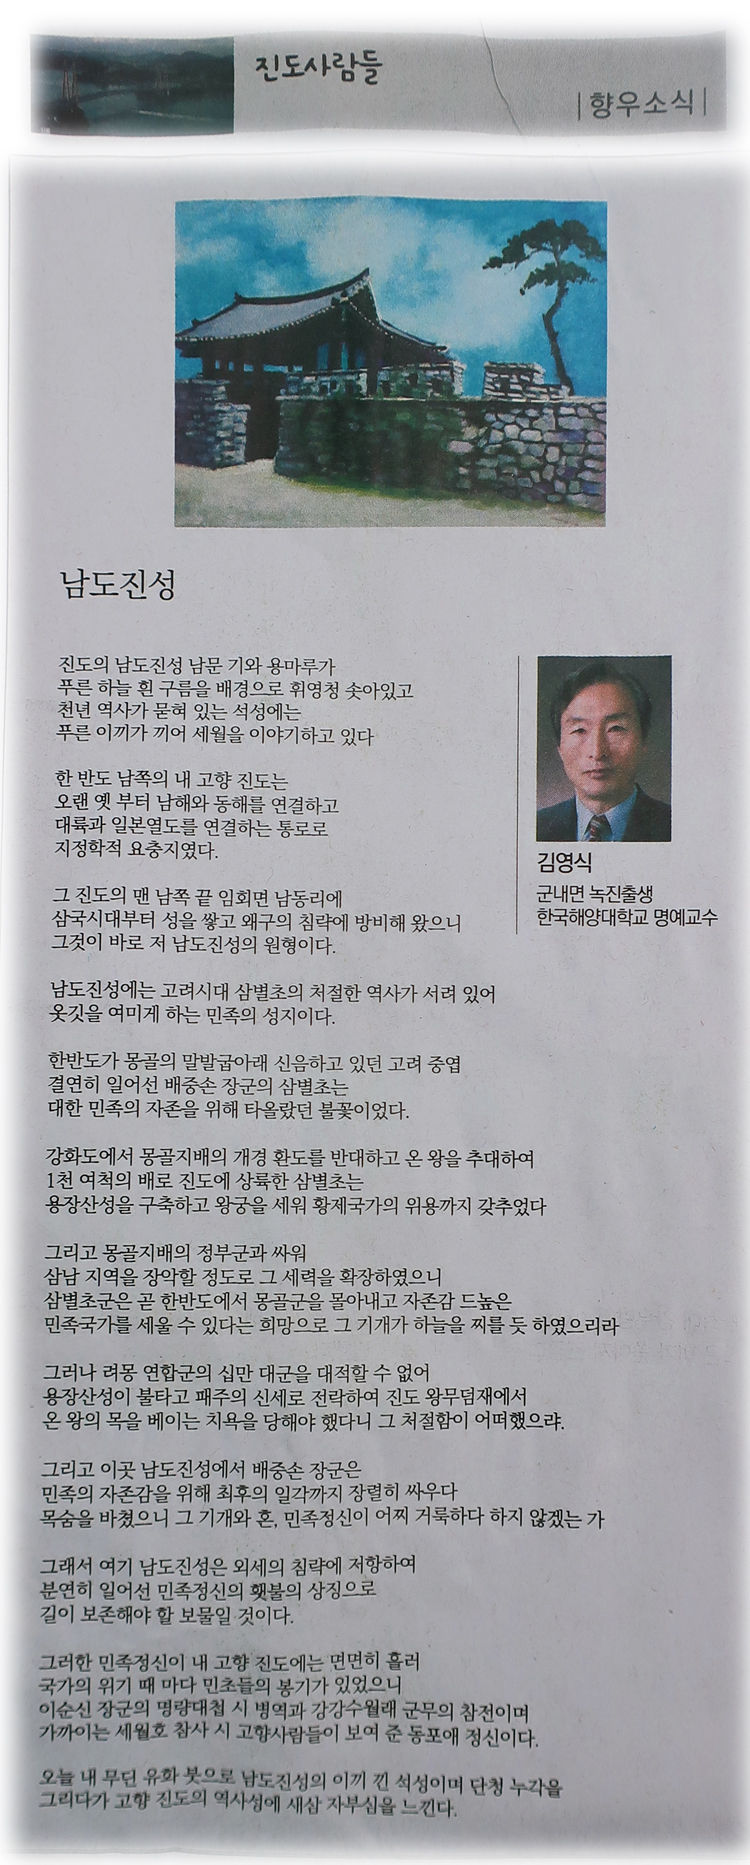 진도사람들
|향우소식|
남도진성
진도의 남도진성 남문 기와 용마루가
푸른 하늘 흰 구름을 배경으로 휘영청 솟아있고
천년 역사가 묻혀 있는 석성에는
푸른 이끼가 끼어 세월을 이야기하고 있다
한 반도 남쪽의 내 고향 진도는
오랜 옛 부터 남해와 동해를 연결하고
대륙과 일본열도를 연결하는 통로로
지정학적 요충지였다.
그 진도의 맨 남쪽 끝 임회면 남동리에
삼국시대부터 성을 쌓고 왜구의 침략에 방비해 왔으니
그것이 바로 저 남도진성의 원형이다.
남도진성에는 고려시대 삼별초의 처절한 역사가 서려 있어
옷깃을 여미게 하는 민족의 성지이다.
한반도가 몽골의 말발굽아래 신음하고 있던 고려 중엽
결연히 일어선 배중손 장군의 삼별초는
대한 민족의 자존을 위해 타올랐던 불꽃이었다.
강화도에서 몽골지배의 개경 환도를 반대하고 온 왕을 추대하여
1천 여척의 배로 진도에 상륙한 삼별초는
용장산성을 구축하고 왕궁을 세워 황제국가의 위용까지 갖추었다
그리고 몽골지배의 정부군과 싸워
삼남 지역을 장악할 정도로 그 세력을 확장하였으니
삼별초군은 곧 한반도에서 몽골군을 몰아내고 자존감 드높은
민족국가를 세울 수 있다는 희망으로 그 기개가 하늘을 찌를 듯 하였으리라
그러나 려몽 연합군의 십만 대군을 대적할 수 없어
용장산성이 불타고 패주의 신세로 전락하여 진도 왕무덤재에서
온 왕의 목을 베이는 치욕을 당해야 했다니 그 처절함이 어떠했으랴.
그리고 이곳 남도진성에서 배중손 장군은
민족의 자존감을 위해 최후의 일각까지 장렬히 싸우다
목숨을 바쳤으니 그 기개와 혼, 민족정신이 어찌 거룩하다 하지 않겠는 가
그래서 여기 남도진성은 외세의 침략에 저항하여
분연히 일어선 민족정신의 횃불의 상징으로
길이 보존해야 할 보물일 것이다.
그러한 민족정신이 내 고향 진도에는 면면히 흘러
국가의 위기 때 마다 민초들의 봉기가 있었으니
이순신 장군의 명량대첩 시 병역과 강강수월래 군무의 참전이며
가까이는 세월호 참사 시 고향사람들이 보여 준 동포애 정신이다.
오늘 내 무딘 유화 붓으로 남도진성의 이끼 낀 석성이며 단청 누각을
그리다가 고향 진도의 역사성에 새삼 자부심을 느낀다.
김영식
군내면 녹진출생
한국해양대학교 명예교수